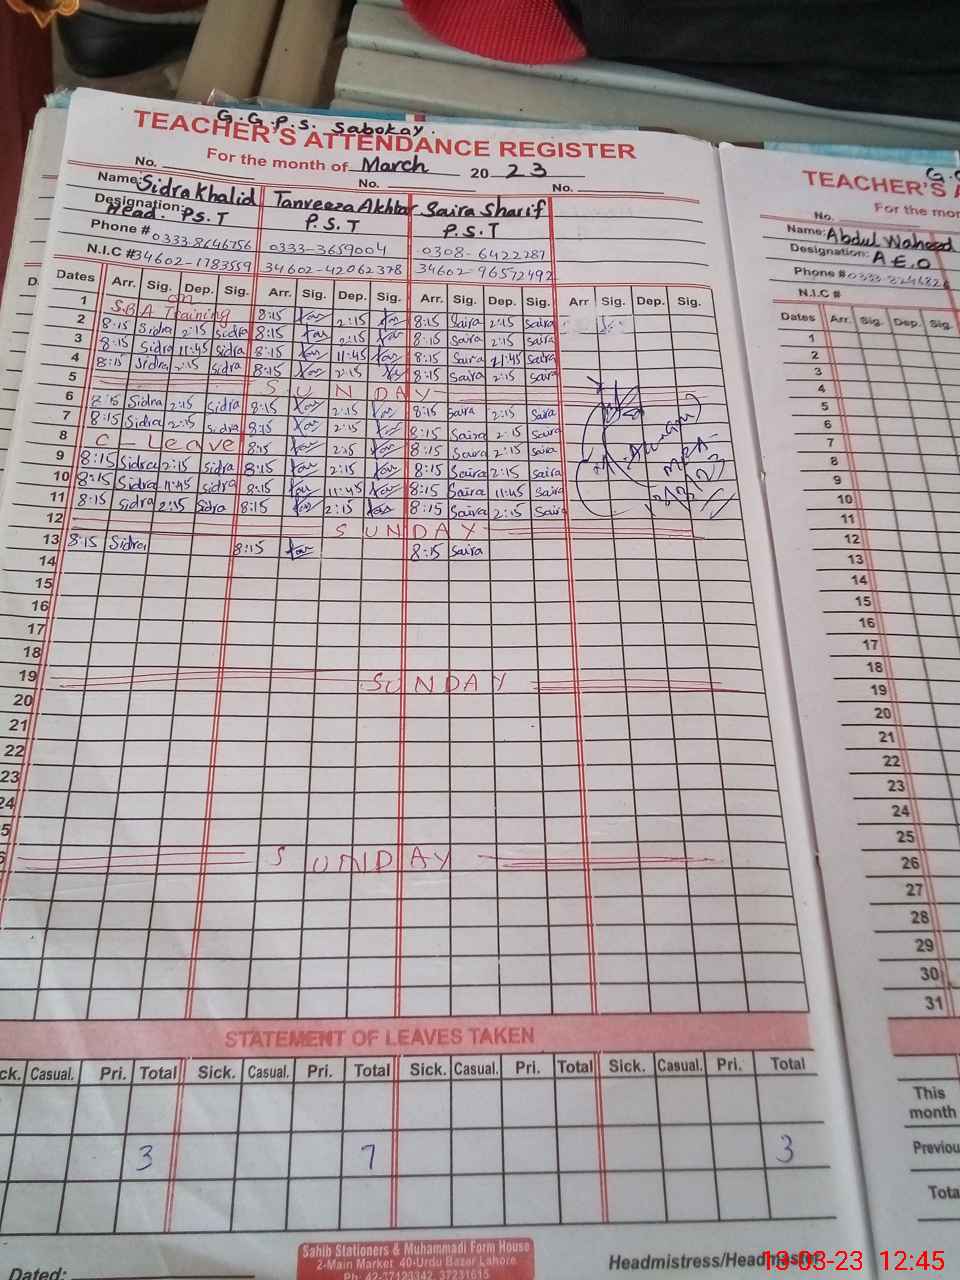 G.G.P.S. Sabokay.
TEACHER'S ATTENDANCE REGISTER
For the month of March 20 23
No. No. No.
Name: Sidra Khalid Tanveeza Akhtar Saira Sharif
Designation: Head. P.S.T P.S.T P.S.T
Phone # 0333-8646756 0333-3659004 0308-6422287
N.I.C # 34602-1783559 34602-42062378 34602-96572492
Dates Arr. Sig. Dep. Sig. Arr. Sig. Dep. Sig. Arr. Sig. Dep. Sig. Arr Sig. Dep. Sig.
1 on S.B.A Training 8:15 2:15 8:15 Saira 2:15 Saira
2 8:15 Sidra 2:15 Sidra 8:15 2:15 8:15 Saira 2:15 Saira
3 8:15 Sidra 11:45 Sidra 8:15 11:45 8:15 Saira 11:45 Saira
4 8:15 Sidra 2:15 Sidra 8:15 2:15 8:15 Saira 2:15 Saira
5 SUNDAY
6 8:15 Sidra 2:15 Sidra 8:15 2:15 8:15 Saira 2:15 Saira
7 8:15 Sidra 2:15 Sidra 8:15 2:15 8:15 Saira 2:15 Saira
8 C-Leave 8:15 2:15 8:15 Saira 2:15 Saira
9 8:15 Sidra 2:15 Sidra 8:15 2:15 8:15 Saira 2:15 Saira
10 8:15 Sidra 11:45 Sidra 8:15 11:45 8:15 Saira 11:45 Saira
11 8:15 Sidra 2:15 Sidra 8:15 2:15 8:15 Saira 2:15 Saira
12 SUNDAY
13 8:15 Sidra 8:15 8:15 Saira
14
15
16
17
18
19 SUNDAY
20
21
22
23
24
SUNDAY
STATEMENT OF LEAVES TAKEN
Casual. Pri. Total Sick. Casual. Pri. Total Sick. Casual. Pri. Total Sick. Casual. Pri. Total
3 7 3
Sahib Stationers & Muhammadi Form House
2-Main Market 40-Urdu Bazar Lahore
Ph: 42-37123342, 37231615
Dated: Headmistress/Headmaster
TEACHER'S
For the mon
No.
Name: Abdul Waheed
Designation: A.E.O
Phone # 0333-8246826
N.I.C #
Dates Arr. Sig. Dep. Sig.
1
2
3
4
5
6
7
8
9
10
11
12
13
14
15
16
17
18
19
20
21
22
23
24
25
26
27
28
29
30
31
This month
Previou
Tota
13-03-23 12:45